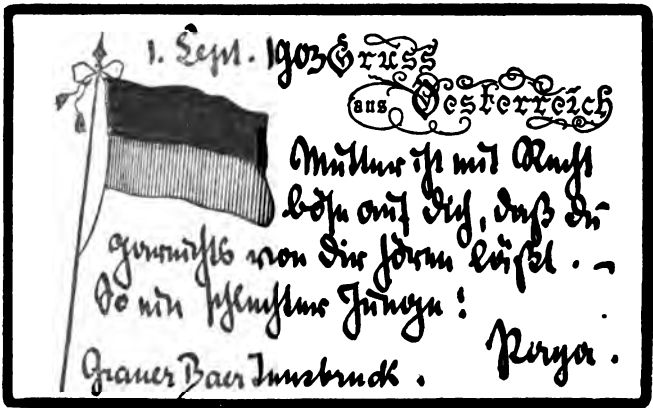 1. Sept. 1903 Gruss
aus Oesterreich
Mutter ist mit Recht
böse auf dich, daß du
garnichts von dir hören läßt. –
So ein schlechter Junge!
Papa.
Grauer Baer Innsbruck.